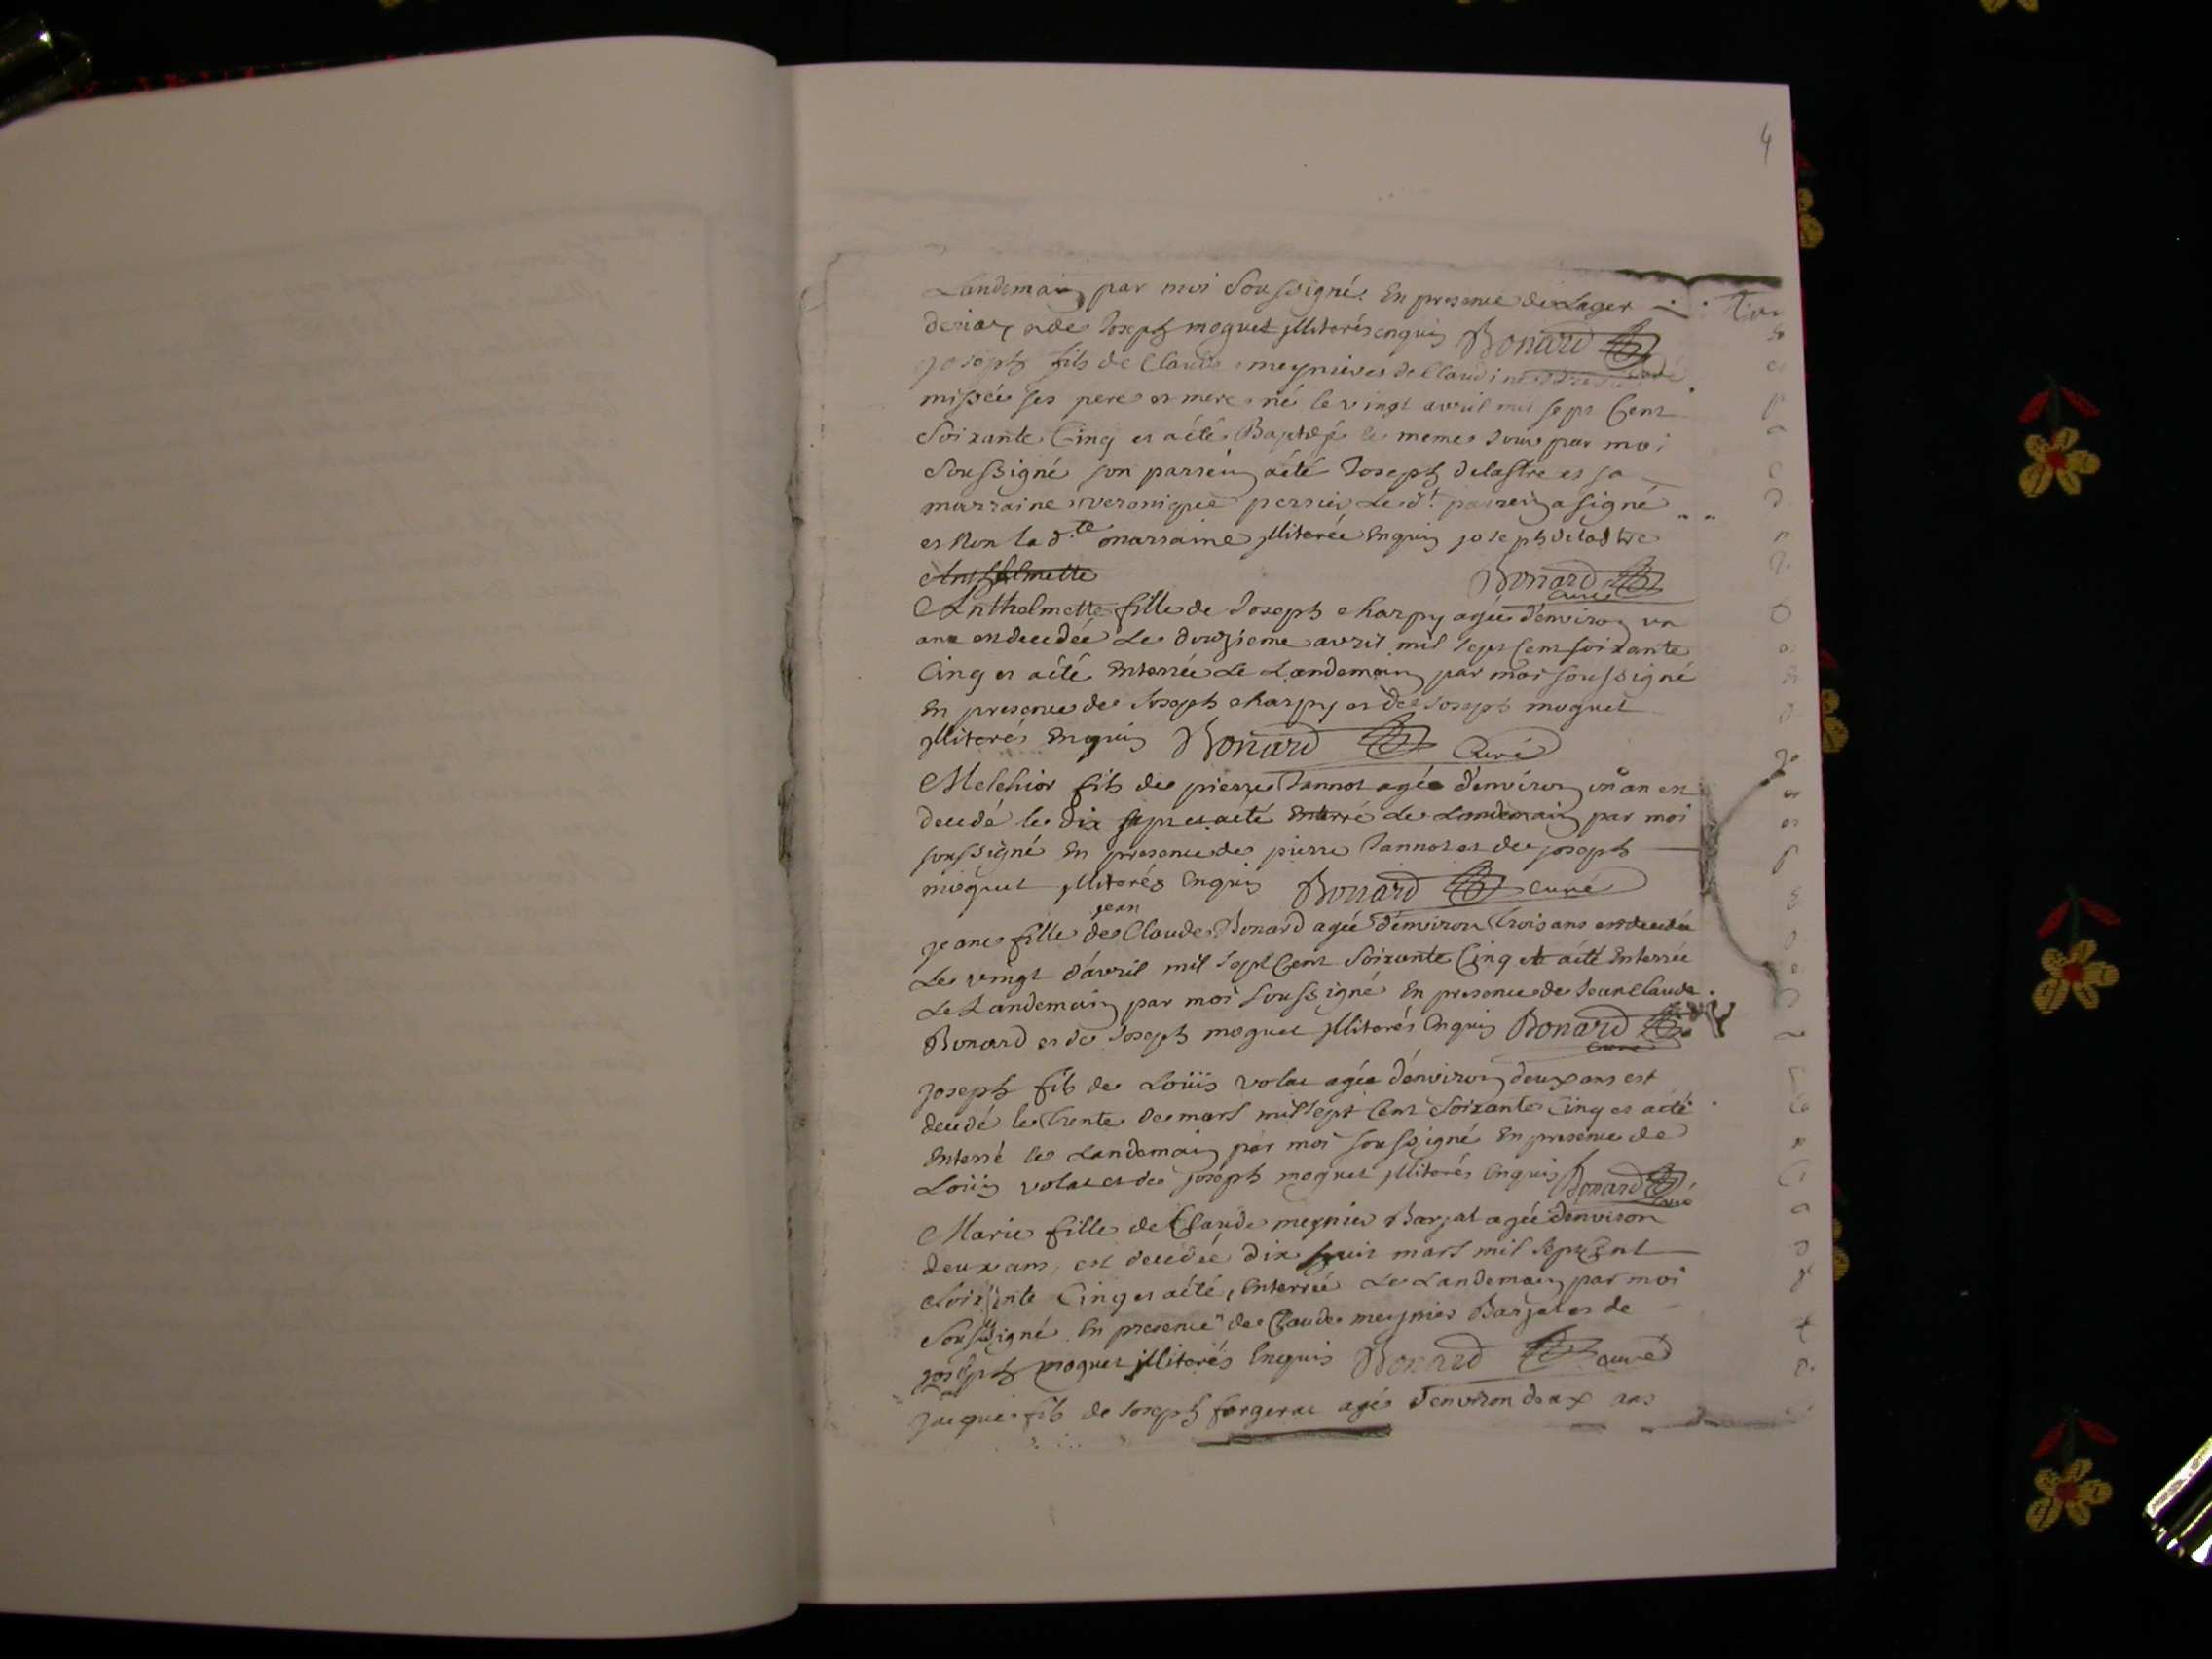 4
Landemain par moi Soussigné. En presence de Lager
et de Joseph moquet jlliterés enquis Bonard
Curé
joseph fils de Claude meynier et de Claudine
missée ses pere et mere né le vingt avril mil sept Cent
Soixante Cinq et aété Baptisé le meme Jour par moi
Soussigné son parrein aété Joseph delastre et sa
marraine veronique perrier Le dt. parrein a signé
et Non la dte marraine jlliterée Enquis joseph delastre
Bonard
Curé
Anthelmette fille de Joseph charpy agée d'environ un
ans est decedée Le douzieme avril mil sept Cent soixante
Cinq et aété Enterrée Le Landemain par moi soussigné
En presence de Joseph charpy et de Joseph moquet
jlliterés Enquis Bonard Curé
Melchior fils de pierre Jannot agée d'environ un an est
decedé le dix sept et aété Enterré Le Landemain par moi
soussigné En presence de pierre Jannot et de joseph
moquet jlliterés Enquis Bonard curé
jean
jeane fille de Claude Bonard agée d'environ trois ans est decedée
Le vingt d'avril mil sept Cent Soixante Cinq et aété Enterrée
Le Landemain par moi Soussigné En presence de Jean Claude
Bonard et de Joseph moquet jlliterés Enquis Bonard
Curé
joseph fils de Loüis volat agée d'environ deux ans est
decedé le trente de mars mil sept Cent Soixante Cinq et aété
Enterré le Landemain par moi soussigné En presence de
Loüis volat et de joseph moquet jlliterés Enquis Bonard
Curé
Marie fille de Claude meynier Barjat agée d'environ
deux ans est decedée dix huit mars mil sept Cent
Soixante Cinq et aété Enterrée Le Landemain par moi
Soussigné En presence de Claude meynier Barjat et de
joseph moquet jlliterés Enquis Bonard curé
jacque fils de Joseph fergerat agée d'environ deux ans